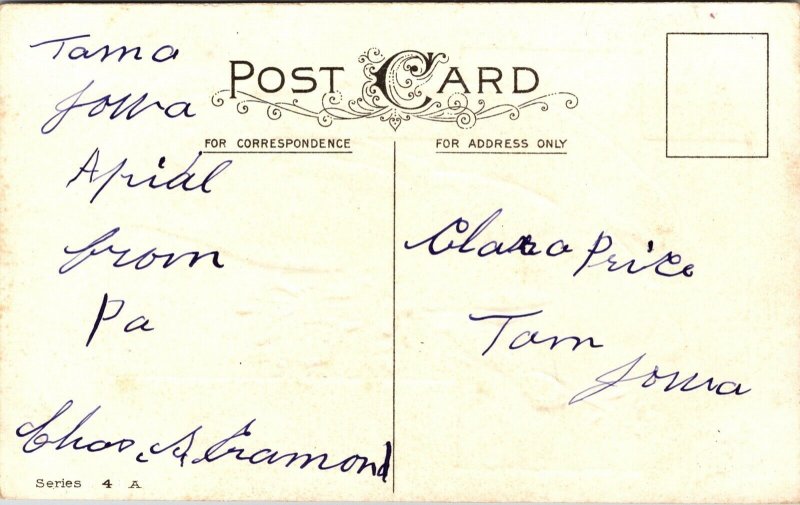 POST CARD
FOR CORRESPONDENCE
FOR ADDRESS ONLY
Tama
Iowa
Aprial
from
Pa
Chas,
Clara Price
Tam
Iowa
Series 4 A